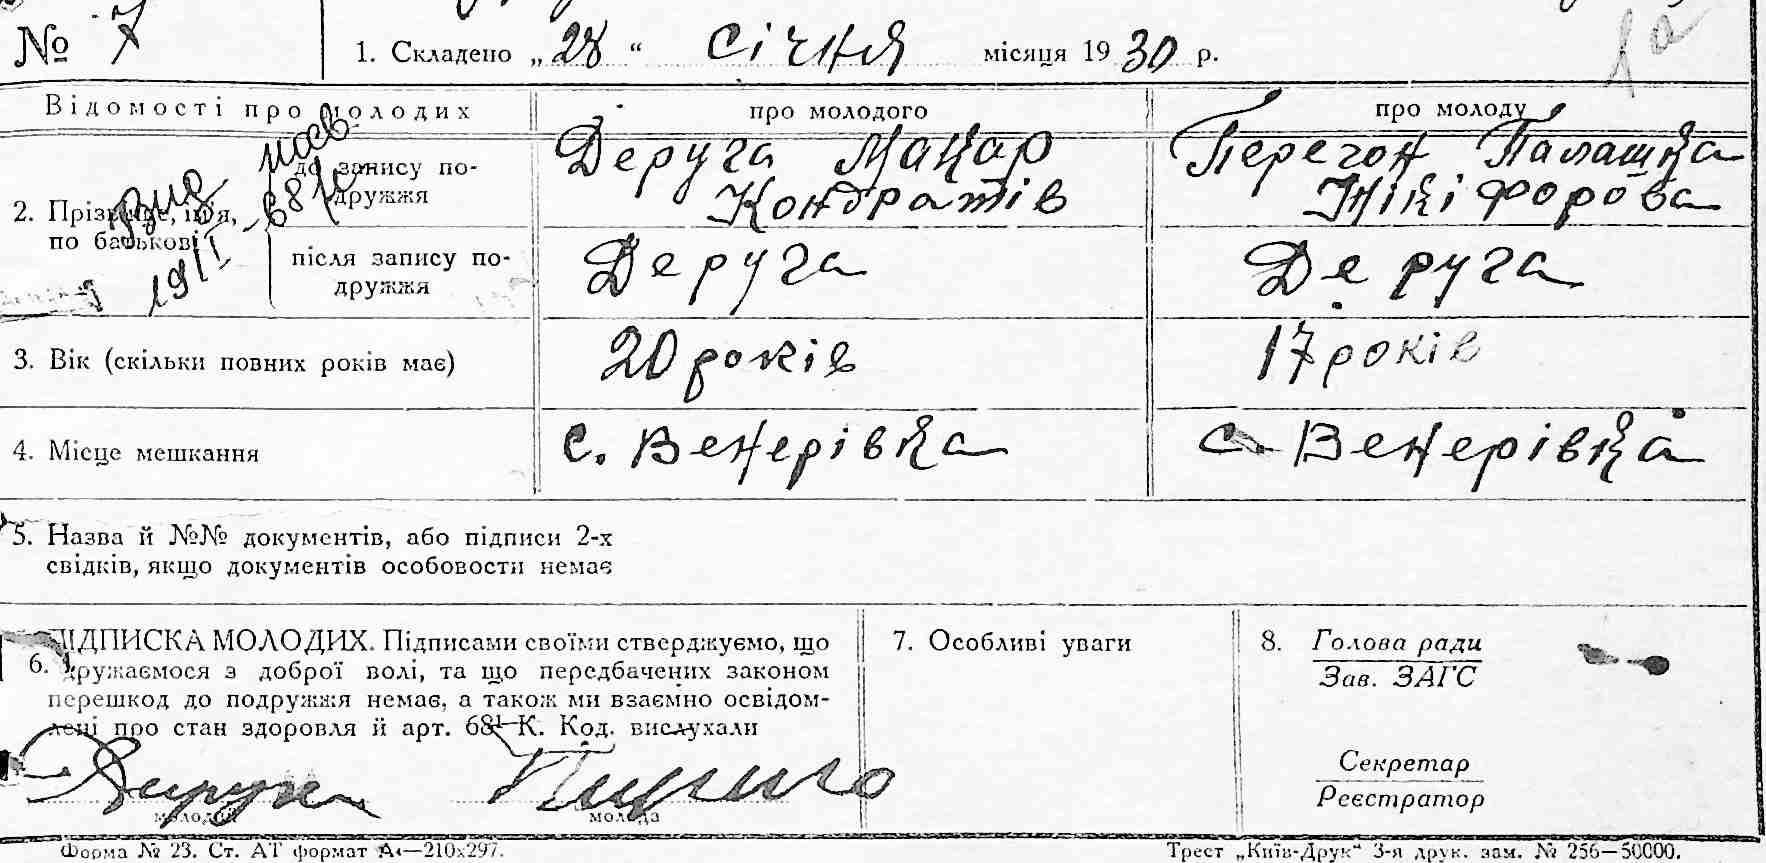 № 7
1. Складено „28“ Січня місяця 1930 р.
Відомості про молодих
про молодого
про молоду
2. Прізвище, ім'я, по батькові
до запису подружжя
Деруга Макар
Кондратів
Перегон Палашка
Нікіфорова
після запису подружжя
Деруга
Деруга
3. Вік (скільки повних років має)
20 років
17 років
4. Місце мешкання
с. Венерівка
с. Венерівка
5. Назва й №№ документів, або підписи 2-х
свідків, якщо документів особовости немає
6. ПІДПИСКА МОЛОДИХ. Підписами своїми стверджуємо, що
дружаємося з доброї волі, та що передбачених законом
перешкод до подружжя немає, а також ми взаємно освідом-
лені про стан здоровля й арт. 68¹ К. Код. вислухали
Деруга
молодий
молода
7. Особливі уваги
8. Голова ради
Зав. ЗАГС
Секретар
Реєстратор
Форма № 23. Ст. АТ формат А₄—210х297.
Трест „Київ-Друк“ 3-я друк. зам. № 256—50000.